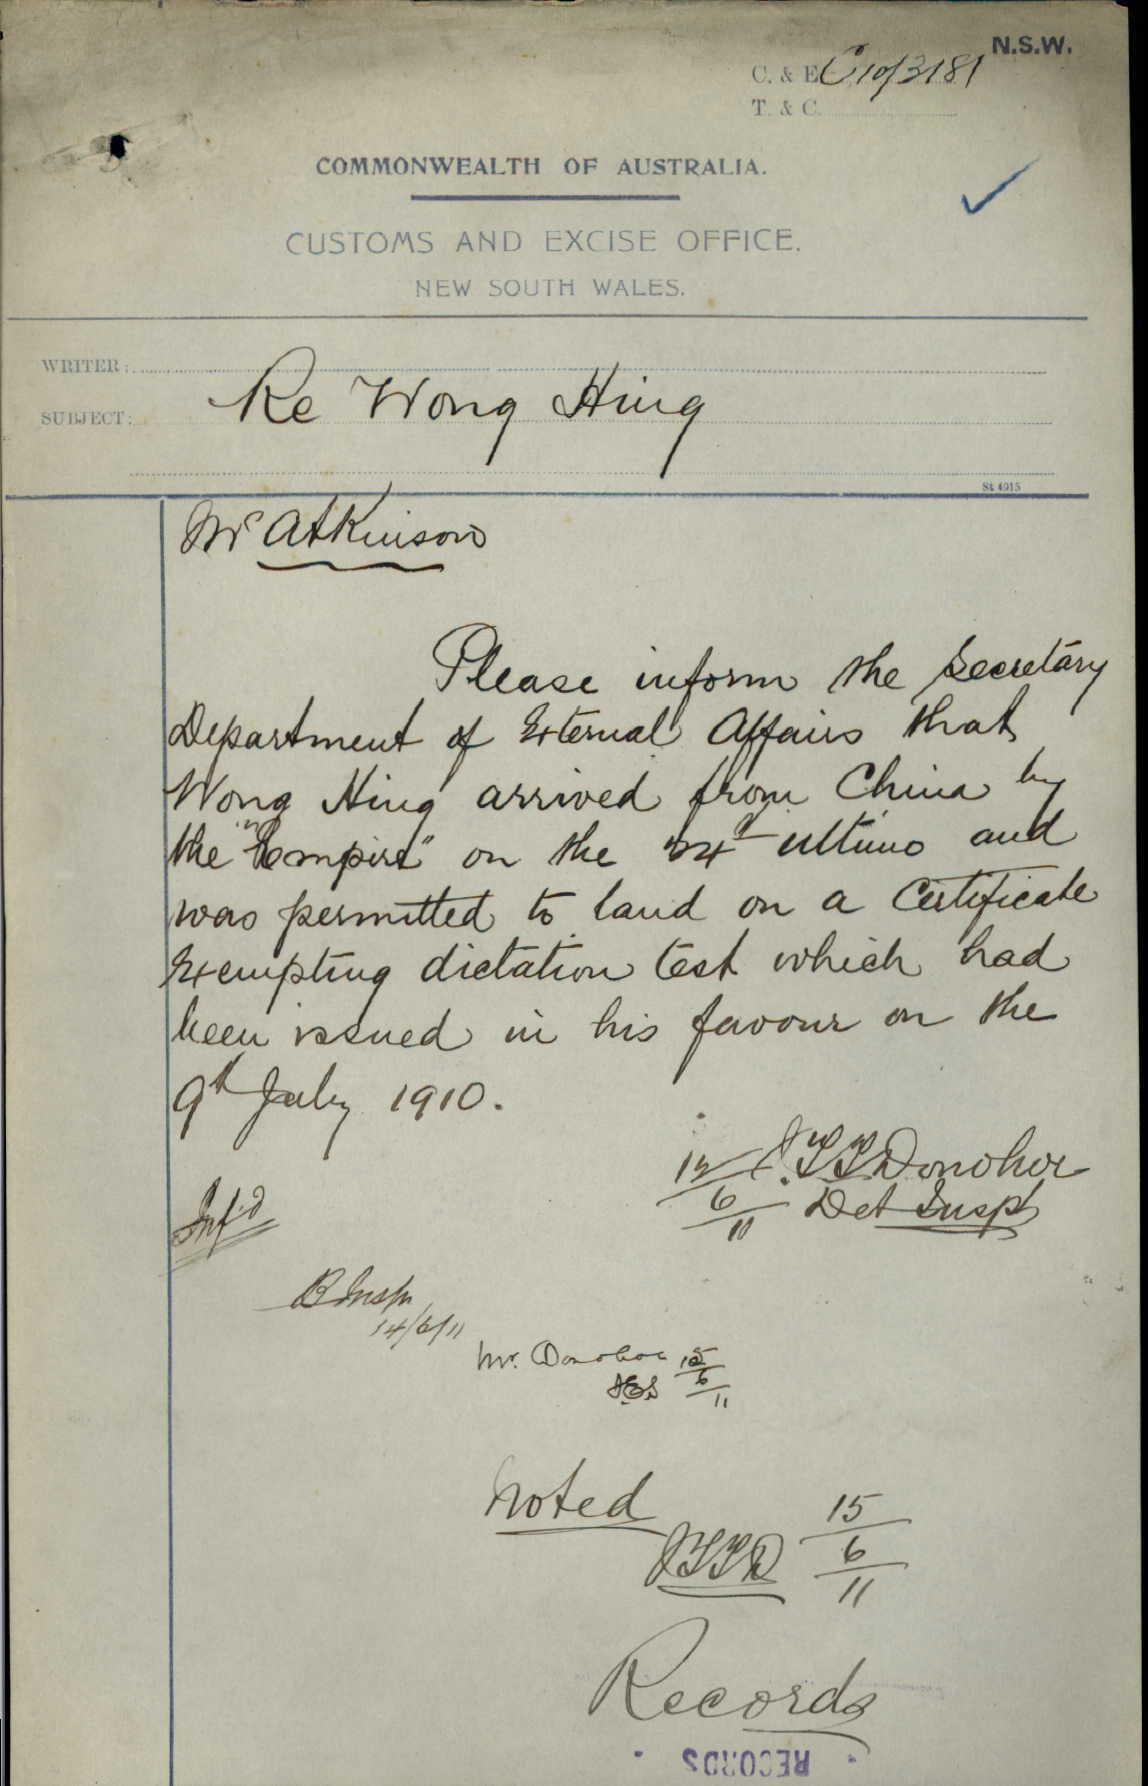 N.S.W.
C. & E. C10/3181
T. & C.
COMMONWEALTH OF AUSTRALIA.
CUSTOMS AND EXCISE OFFICE.
NEW SOUTH WALES.
WRITER:
SUBJECT: Re Wong Hing
St. 4915
Mr Atkinson
Please inform the Secretary
Department of External Affairs that
Wong Hing arrived from China by
the "Empire" on the ultimo and
was permitted to land on a Certificate
Exempting dictation test which had
been issued in his favour on the
9th July 1910.
12/6/11 J.T.T. Donohoe
Det Insp
Inf'd
B Insp
14/6/11
Mr. Donohoe 15/6/11
Noted
JTTD 15/6/11
Records
RECORDS